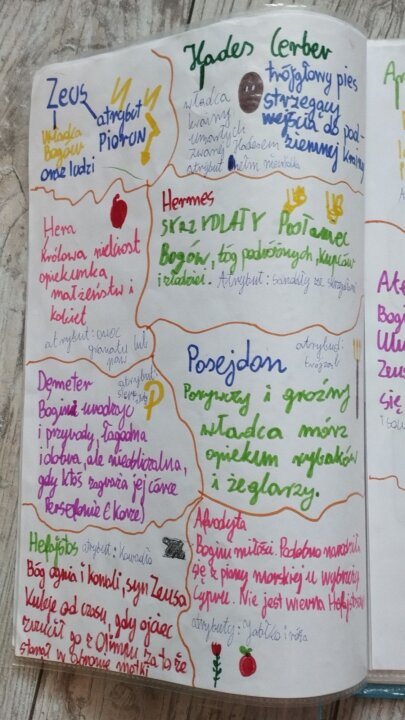 Zeus
Władca
Bogów
oraz ludzi
atrybut
Piorun
Hades Cerber
władca
krainy
umarłych
zwanej Hadesem
atrybut hełm
trójgłowy pies
strzegący
wejścia do pod-
ziemnej krainy
Hera
Królowa
opiekunka
małżeństw i
kobiet
atrybut: owoc
granatu lub
paw
Hermes
SKRZYDLATY Posłaniec
Bogów, bóg podróżnych, kupców
i złodziei. Atrybut: sandały ze skrzydłami
Demeter
atrybut:
Bogini urodzaju
i przyrody, łagodna
i dobra, ale nieobliczalna,
gdy ktoś zagraża jej córce
Persefonie (Korze)
Posejdon
atrybut:
trójząb
Porywczy i groźny
władca mórz
opiekun rybaków
i żeglarzy.
Hefajstos atrybut: Kowadło
Bóg ognia i kowali, syn Zeusa
Kuleje od czasu, gdy ojciec
zrzucił go z Olimpu za to że
stanął w obronie matki
Afrodyta
Bogini miłości. Podobno narodziła
się z piany morskiej u wybrzeży
Cypru. Nie jest wierna Hefajstosowi
atrybuty: Jabłko i róża